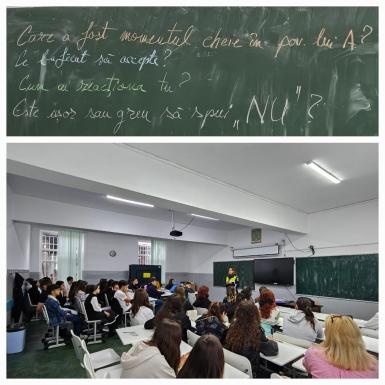 Care a fost momentul cheie în pov. lui A?
Ce l-a făcut să accepte?
Cum ai reacționa tu?
Este ușor sau greu să spui „NU”?